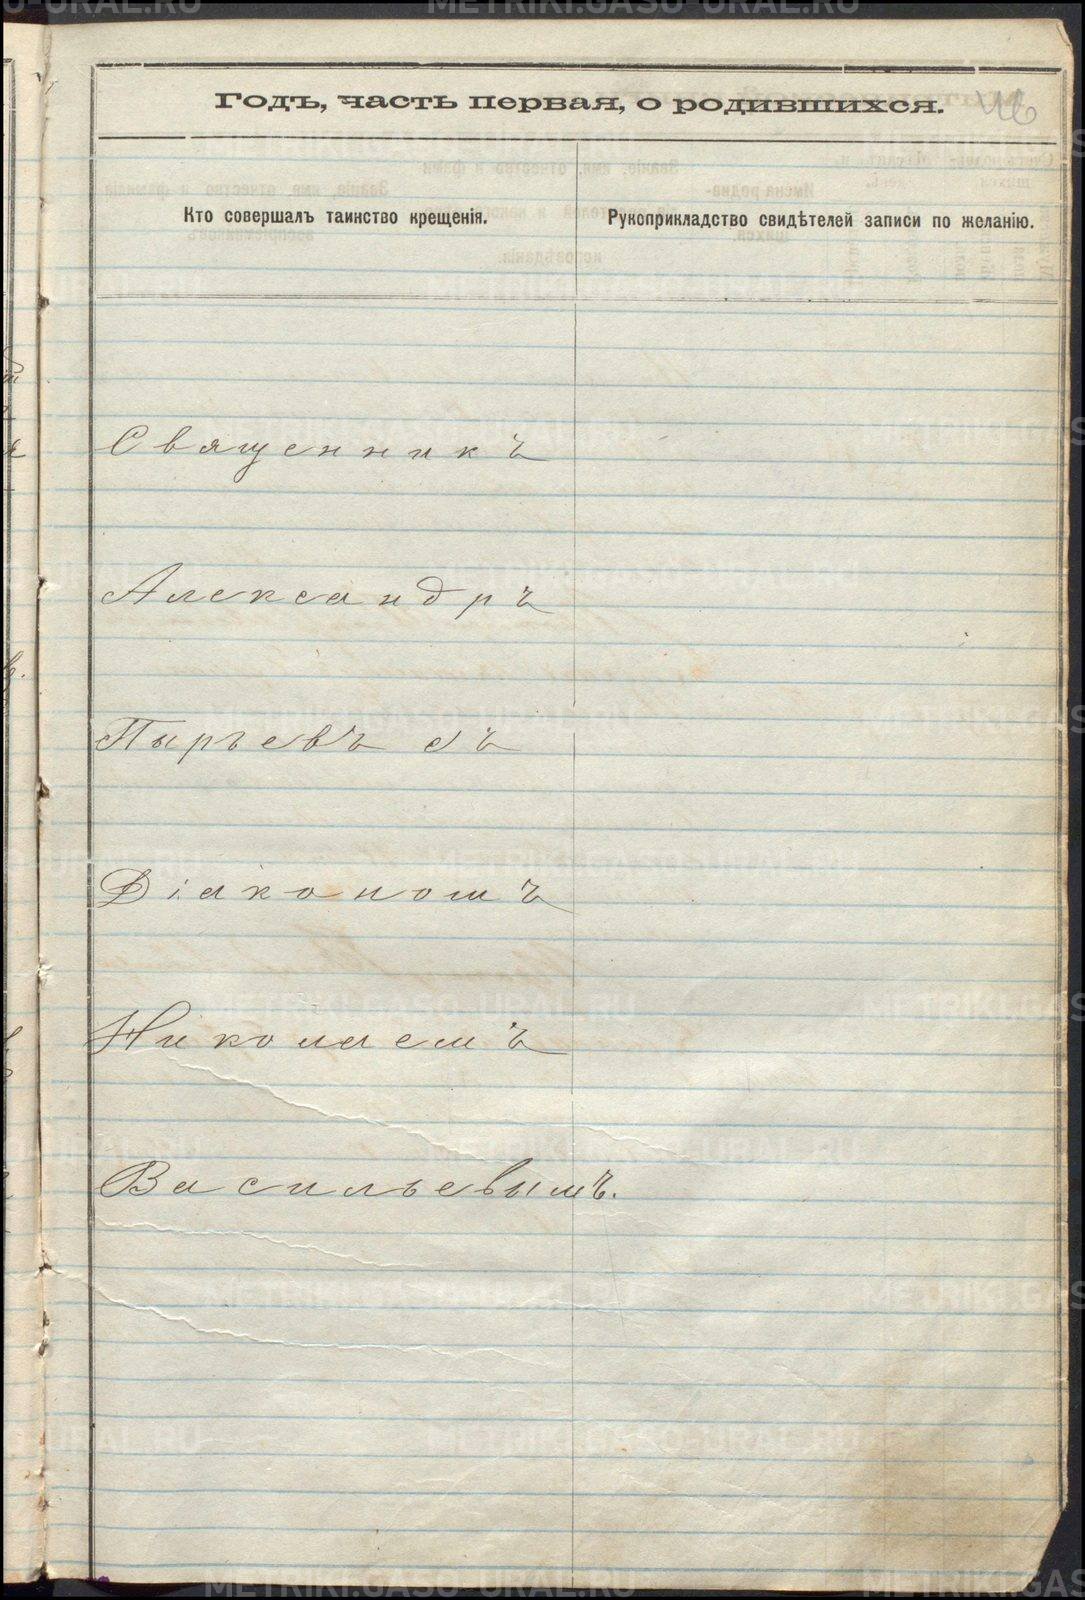 Годъ, часть первая, о родившихся.
46
Кто совершалъ таинство крещенія.
Рукоприкладство свидѣтелей записи по желанію.
Священникъ
Александръ
Пырьевъ съ
Діакономъ
Николаемъ
Васильевымъ.
METRIKI.GASO-URAL.RU